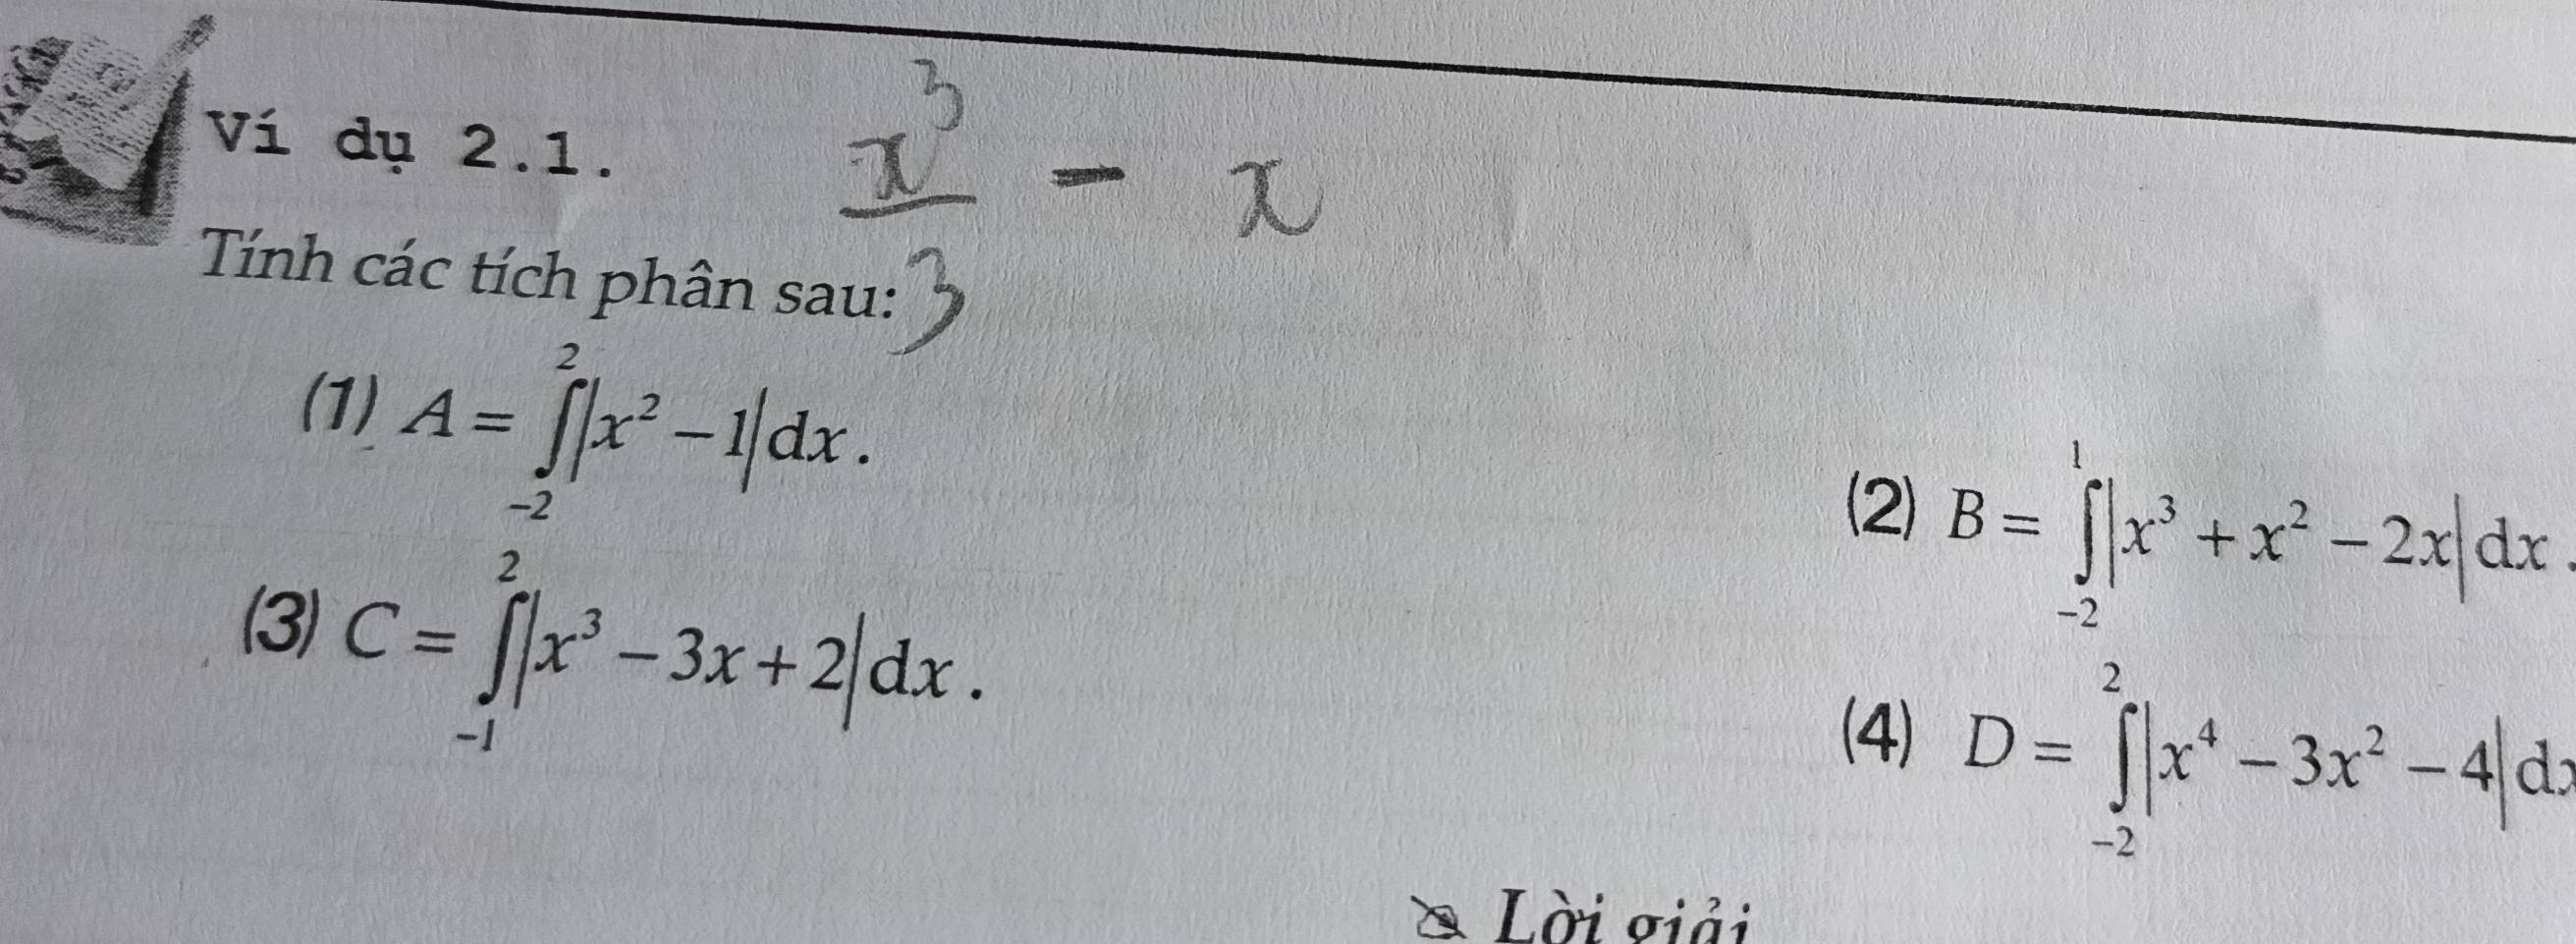 Ví dụ 2.1.
x³/3 − x
Tính các tích phân sau:
(1) A = ∫₋₂² |x² − 1| dx.
(2) B = ∫₋₂¹ |x³ + x² − 2x| dx.
(3) C = ∫₋₁² |x³ − 3x + 2| dx.
(4) D = ∫₋₂² |x⁴ − 3x² − 4| dx
Lời giải